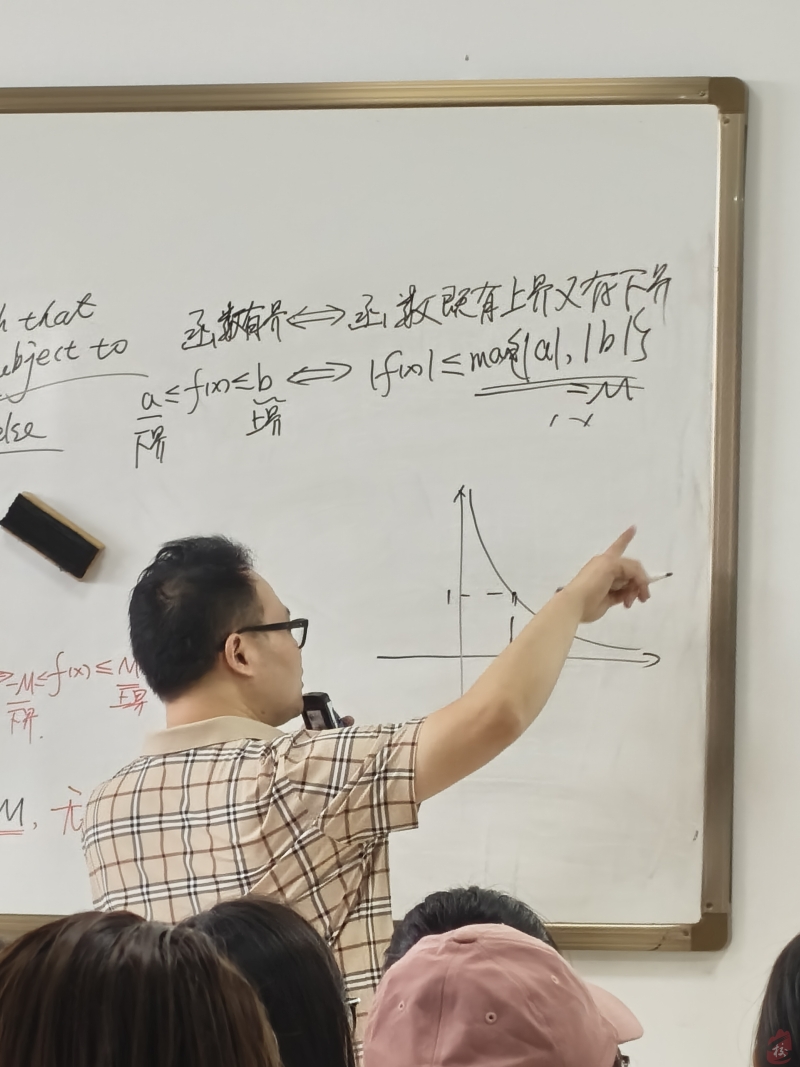 h that
ubject to
else
函数有界⟺函数既有上界又有下界
a≤f(x)≤b ⟺ |f(x)|≤max{|a|,|b|}
=M
下界 上界
1
1
-M≤f(x)≤M
下界. 上界
M, 无